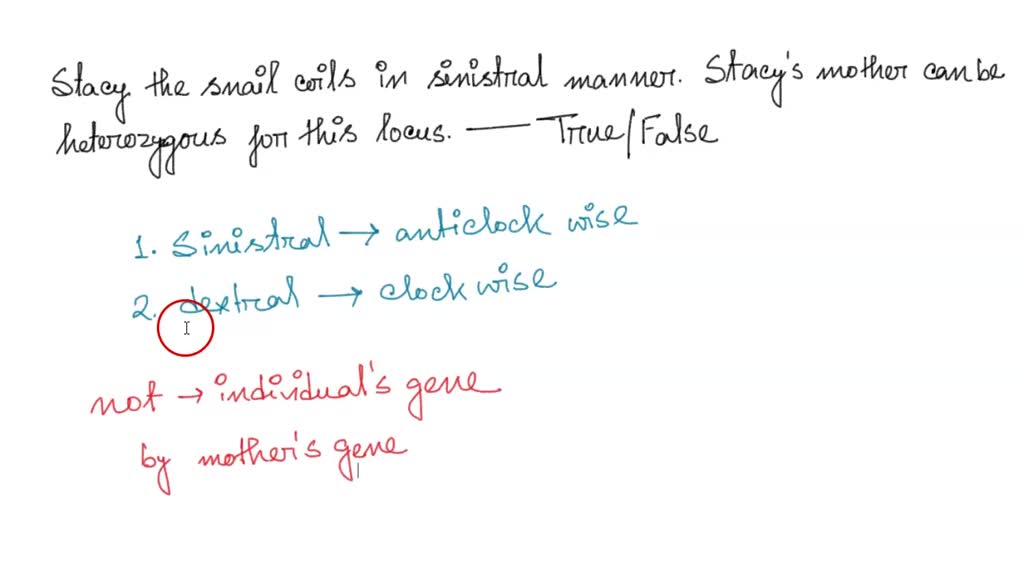 Stacy the snail coils in sinistral manner. Stacy's mother can be
heterozygous for this locus. — True/False
1. Sinistral → anticlock wise
2. dextral → clock wise
not → individual's gene
by mother's gene